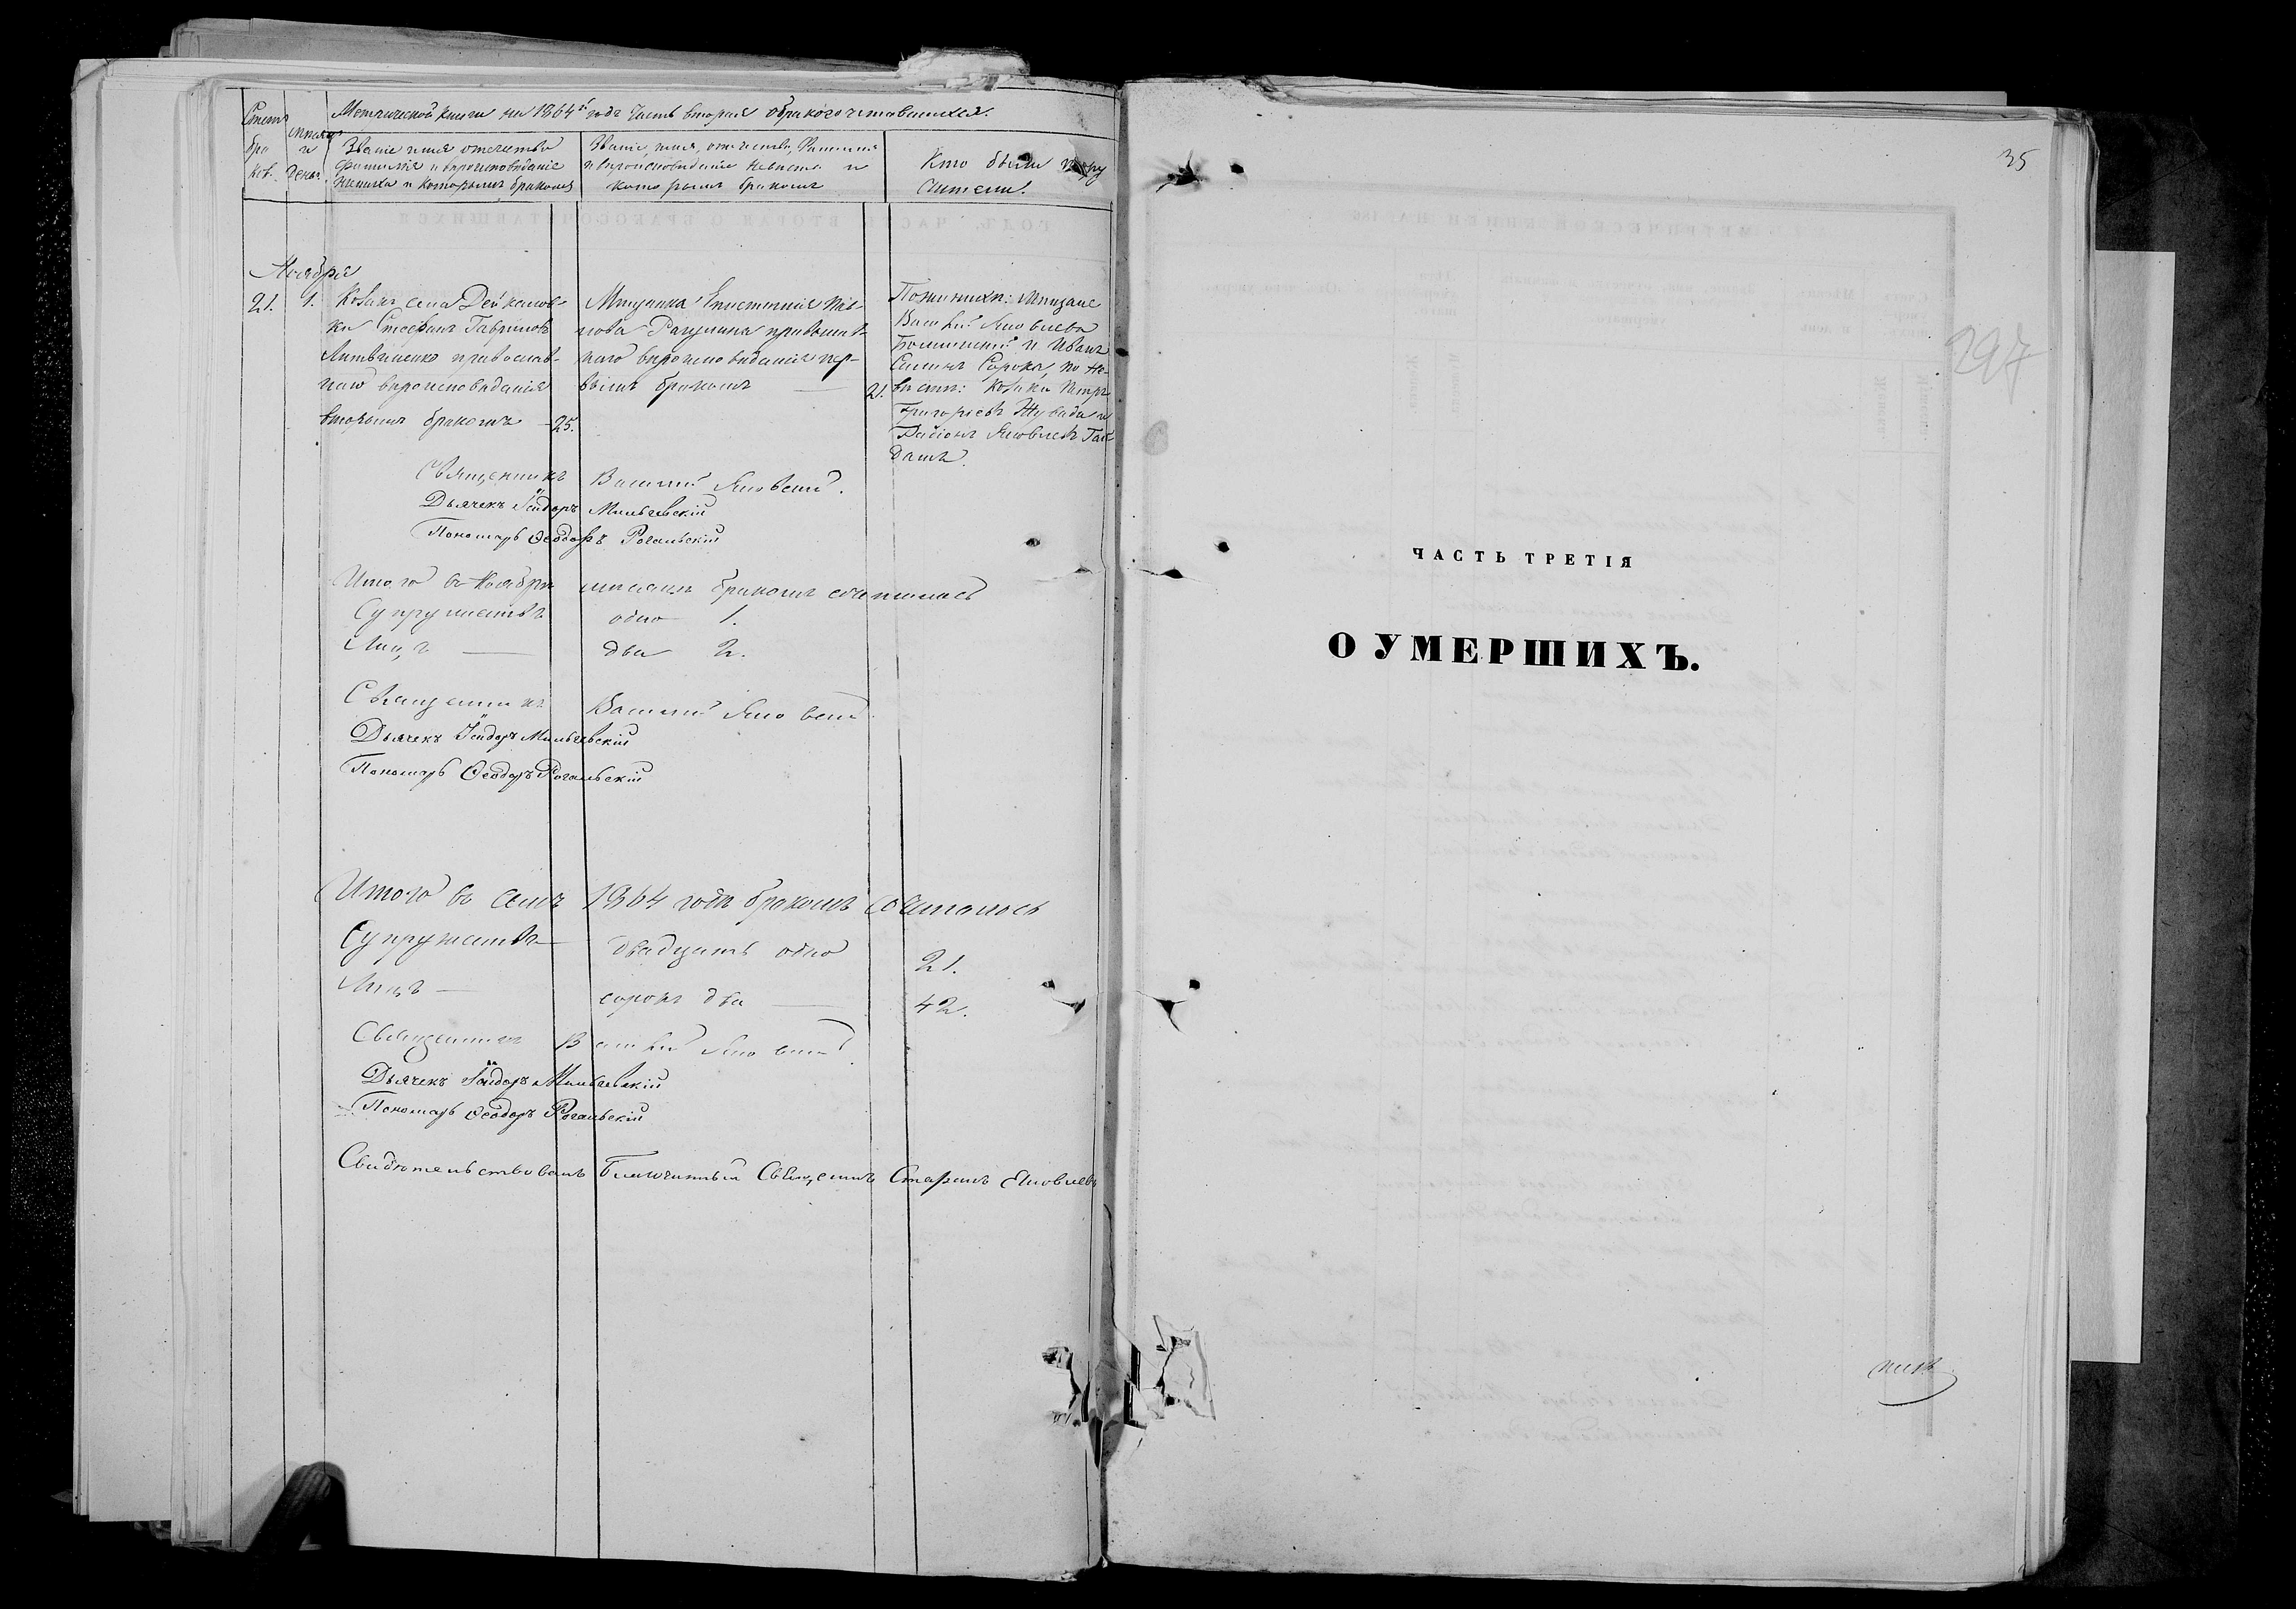 Метрической книги на 1864й годъ Часть вторая о бракосочетавшихся.
Счетъ бра ковъ.
Мѣсяцъ и день.
Званіе имя отечество
фамилія и вѣроисповѣданіе
жениха и которымъ бракомъ
Званіе, имя, отечество, Фамилия
и вѣроисповѣданіе невѣсты и
которымъ бракомъ
Кто были пору
чители.
Ноября
21. 1.
Козакъ села Дейкалов-
ки Стефанъ Гавриловъ
Литвиненко православ-
наго вѣроисповѣданія
вторымъ бракомъ 25.
православ-
наго вѣроисповѣданія пер-
вымъ бракомъ — 21.
По женихѣ: Мещане
Василий Яковлевъ
и Иванъ
Сорока, по не-
вѣстѣ: козаки Петръ
Григорьевъ и
Яковлевъ Гай
дашъ.
Священникъ Василий Яновский.
Дьячекъ Ісидоръ Мильчевскій
Пономарь Ѳеодоръ Рогальскій
Итого въ Ноябрѣ мѣсяцѣ бракомъ сочеталось
Супружествъ одно 1.
Лицъ — два 2.
Священникъ Василий Яновский
Дьячекъ Ісидоръ Мильчевскій
Пономарь Ѳеодоръ Рогальскій
Итого въ семъ 1864 годѣ бракомъ сочеталось
Супружествъ — двадцать одно 21.
Лицъ — сорокъ два — 42.
Священникъ Василий Яновский
Дьячекъ Ісидоръ Мильчевскій
Пономарь Ѳеодоръ Рогальскій
Свидѣтельствовалъ Благочинный Священникъ Яковлевъ
35
297
ЧАСТЬ ТРЕТІЯ
О УМЕРШИХЪ.